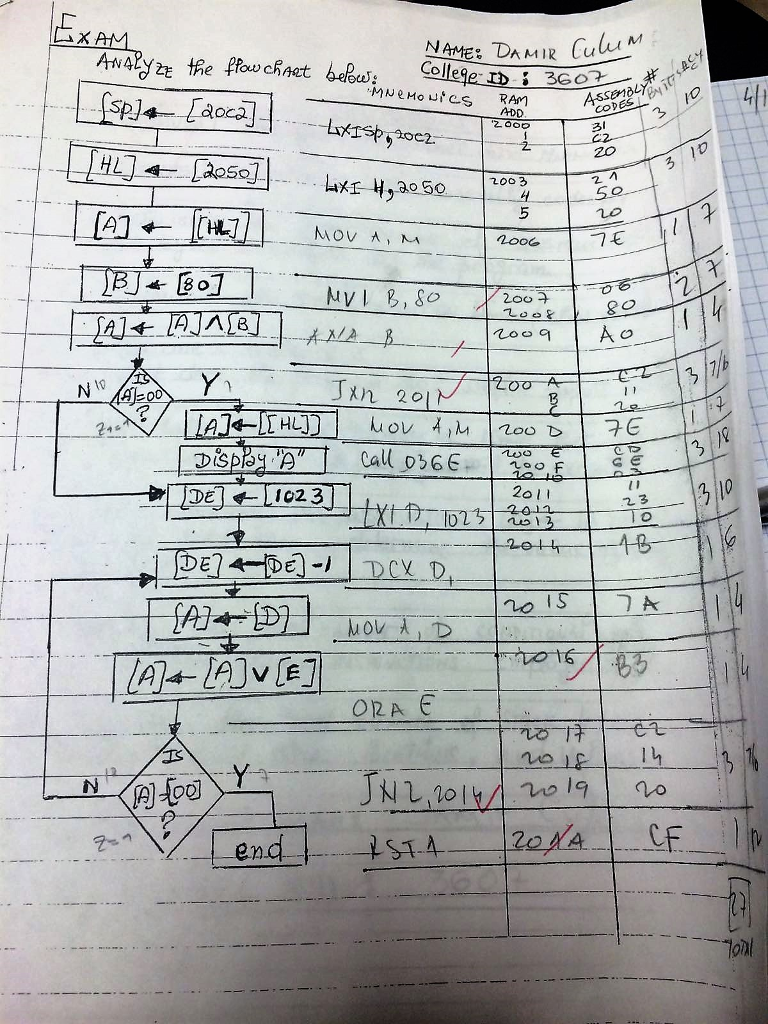 EXAM
NAME: DAMIR Culum
ANALYZE the flowchart below:
College ID: 3607
MNEMONICS RAM ADD. ASSEMBLY CODES #
[SP] ← [20C2] LXISP, 20C2 2000 31 3 10
1 C2
2 20
[HL] ← [2050] LXI H, 2050 2003 21 3 10
4 50
5 20
[A] ← [[HL]] MOV A, M 2006 7E 1 7
[B] ← [80] MVI B, 80 2007 06 2 7
2008 80
[A] ← [A] Λ [B] B 2009 A0 1 4
N 10 Is [A]=00 ? Y 200 A C2 3 7/10
B 11
C 20
[A] ← [[HL]] MOV A, M 200 D 7E 1 7
Display "A" Call 036E 200 E CD 3 18
200 F 6E
20 10
[DE] ← [1023] LXI D, 1023 2011 11 3 10
2012 23
2013 10
[DE] ← [DE] -1 DCX D, 2014 1B 1 6
[A] ← [D] MOV A, D 20 15 7A 1 4
[A] ← [A] V [E] ORA E 2016 B3 1 4
Is [A]=[00] ? N 10 Y 7
JNZ, 2014 20 17 C2 3
20 18 14
20 19 20
Z=1
end RST 1 20 1A CF 1 12
27
TOTAL
4/1